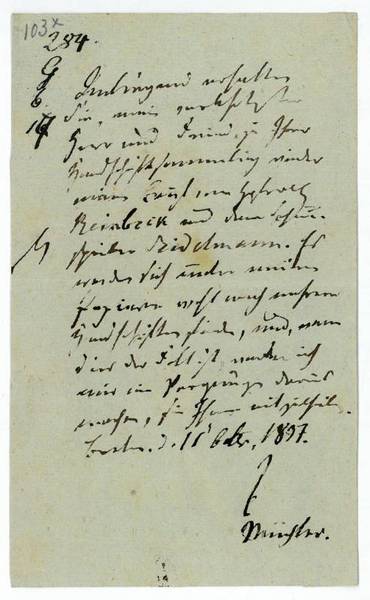 103x
284.
Anliegend erhalten
Sie, mein verehrtester
Herr und Freund, zu Ihrer
Handschriftsammlung wieder
einen Brief vom Hofrath
Reinbeck und dem Schau-
spieler Seidelmann. Es
werden sich unter meinen
Papieren wohl noch mehrere
Handschriften finden, und, wenn
dies der Fall ist, werde ich
mir ein Vergnügen daraus
machen, sie Ihnen mitzutheilen.
Berlin. d. 11 1837.
Müchler.